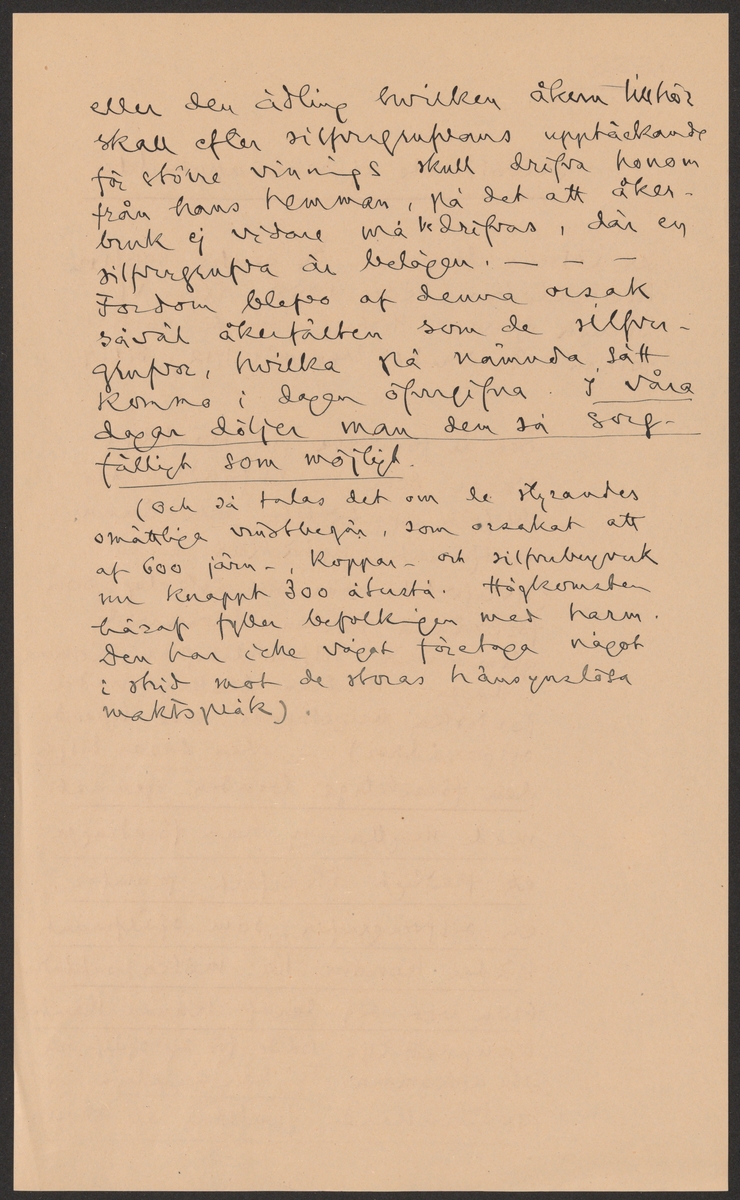 eller den ädling hvilken åkern tillhör
skall efter silfvergrufvans upptäckande
för större vinnings skull drifva honom
från hans hemman, på det att åker-
bruk ej vidare må drifvas, där en
silfvergrufva är belägen. — — —
Fordom blefvo af denna orsak
såväl åkerfälten som de silfver-
grufvor, hvilka på nämnda sätt
komma i dagen öfvergifna. I våra
dagar döljer man dem så sorg-
fälligt som möjligt.
(Och så talas det om de styrandes
omättliga vinstbegär, som orsakat att
af 600 järn-, koppar- och silfverbergverk
nu knappt 300 återstå. Hågkomsten
häraf fyller befolkningen med harm.
Den har icke vågat företaga något
i strid mot de storas hänsynslösa
maktspråk).